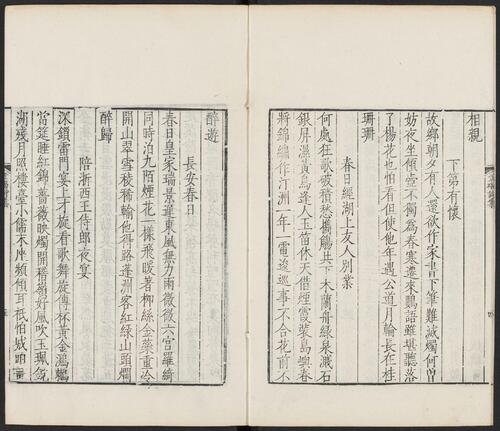 相親
下第有懷
故鄉朝夕有人還欲作家書下筆難滅燭何曾
妨夜坐傾壺不獨為春寒遷來鸚語雖堪聽落
了楊花也怕看但使他年遇公道月輪長在桂
珊珊
春日經湖上友人別業
何處狂歌破積愁攜觴共下木蘭舟綠泉濺石
銀屏濕黃鳥逢人玉笛休天借煙霞裝島嶼春
將錦繡作汀洲一年一電逡巡事不合花前不
醉遊
長安春日
春日皇家瑞景遲東風無力雨微微六宮羅綺
同時泊九陌煙花一樣飛暖著柳絲金蘂重冷
開山翠雪稜稀輸他得路蓬洲客紅綠山頭爛
醉歸
陪浙西王侍郎夜宴
深鎖雷門宴上才旋看歌舞旋傳杯黃金鸂鶒
當筵睡紅錦薔薇映燭開稽嶺好風吹玉珮鏡
湖殘月照樓臺小儒末座頻傾耳秖怕城